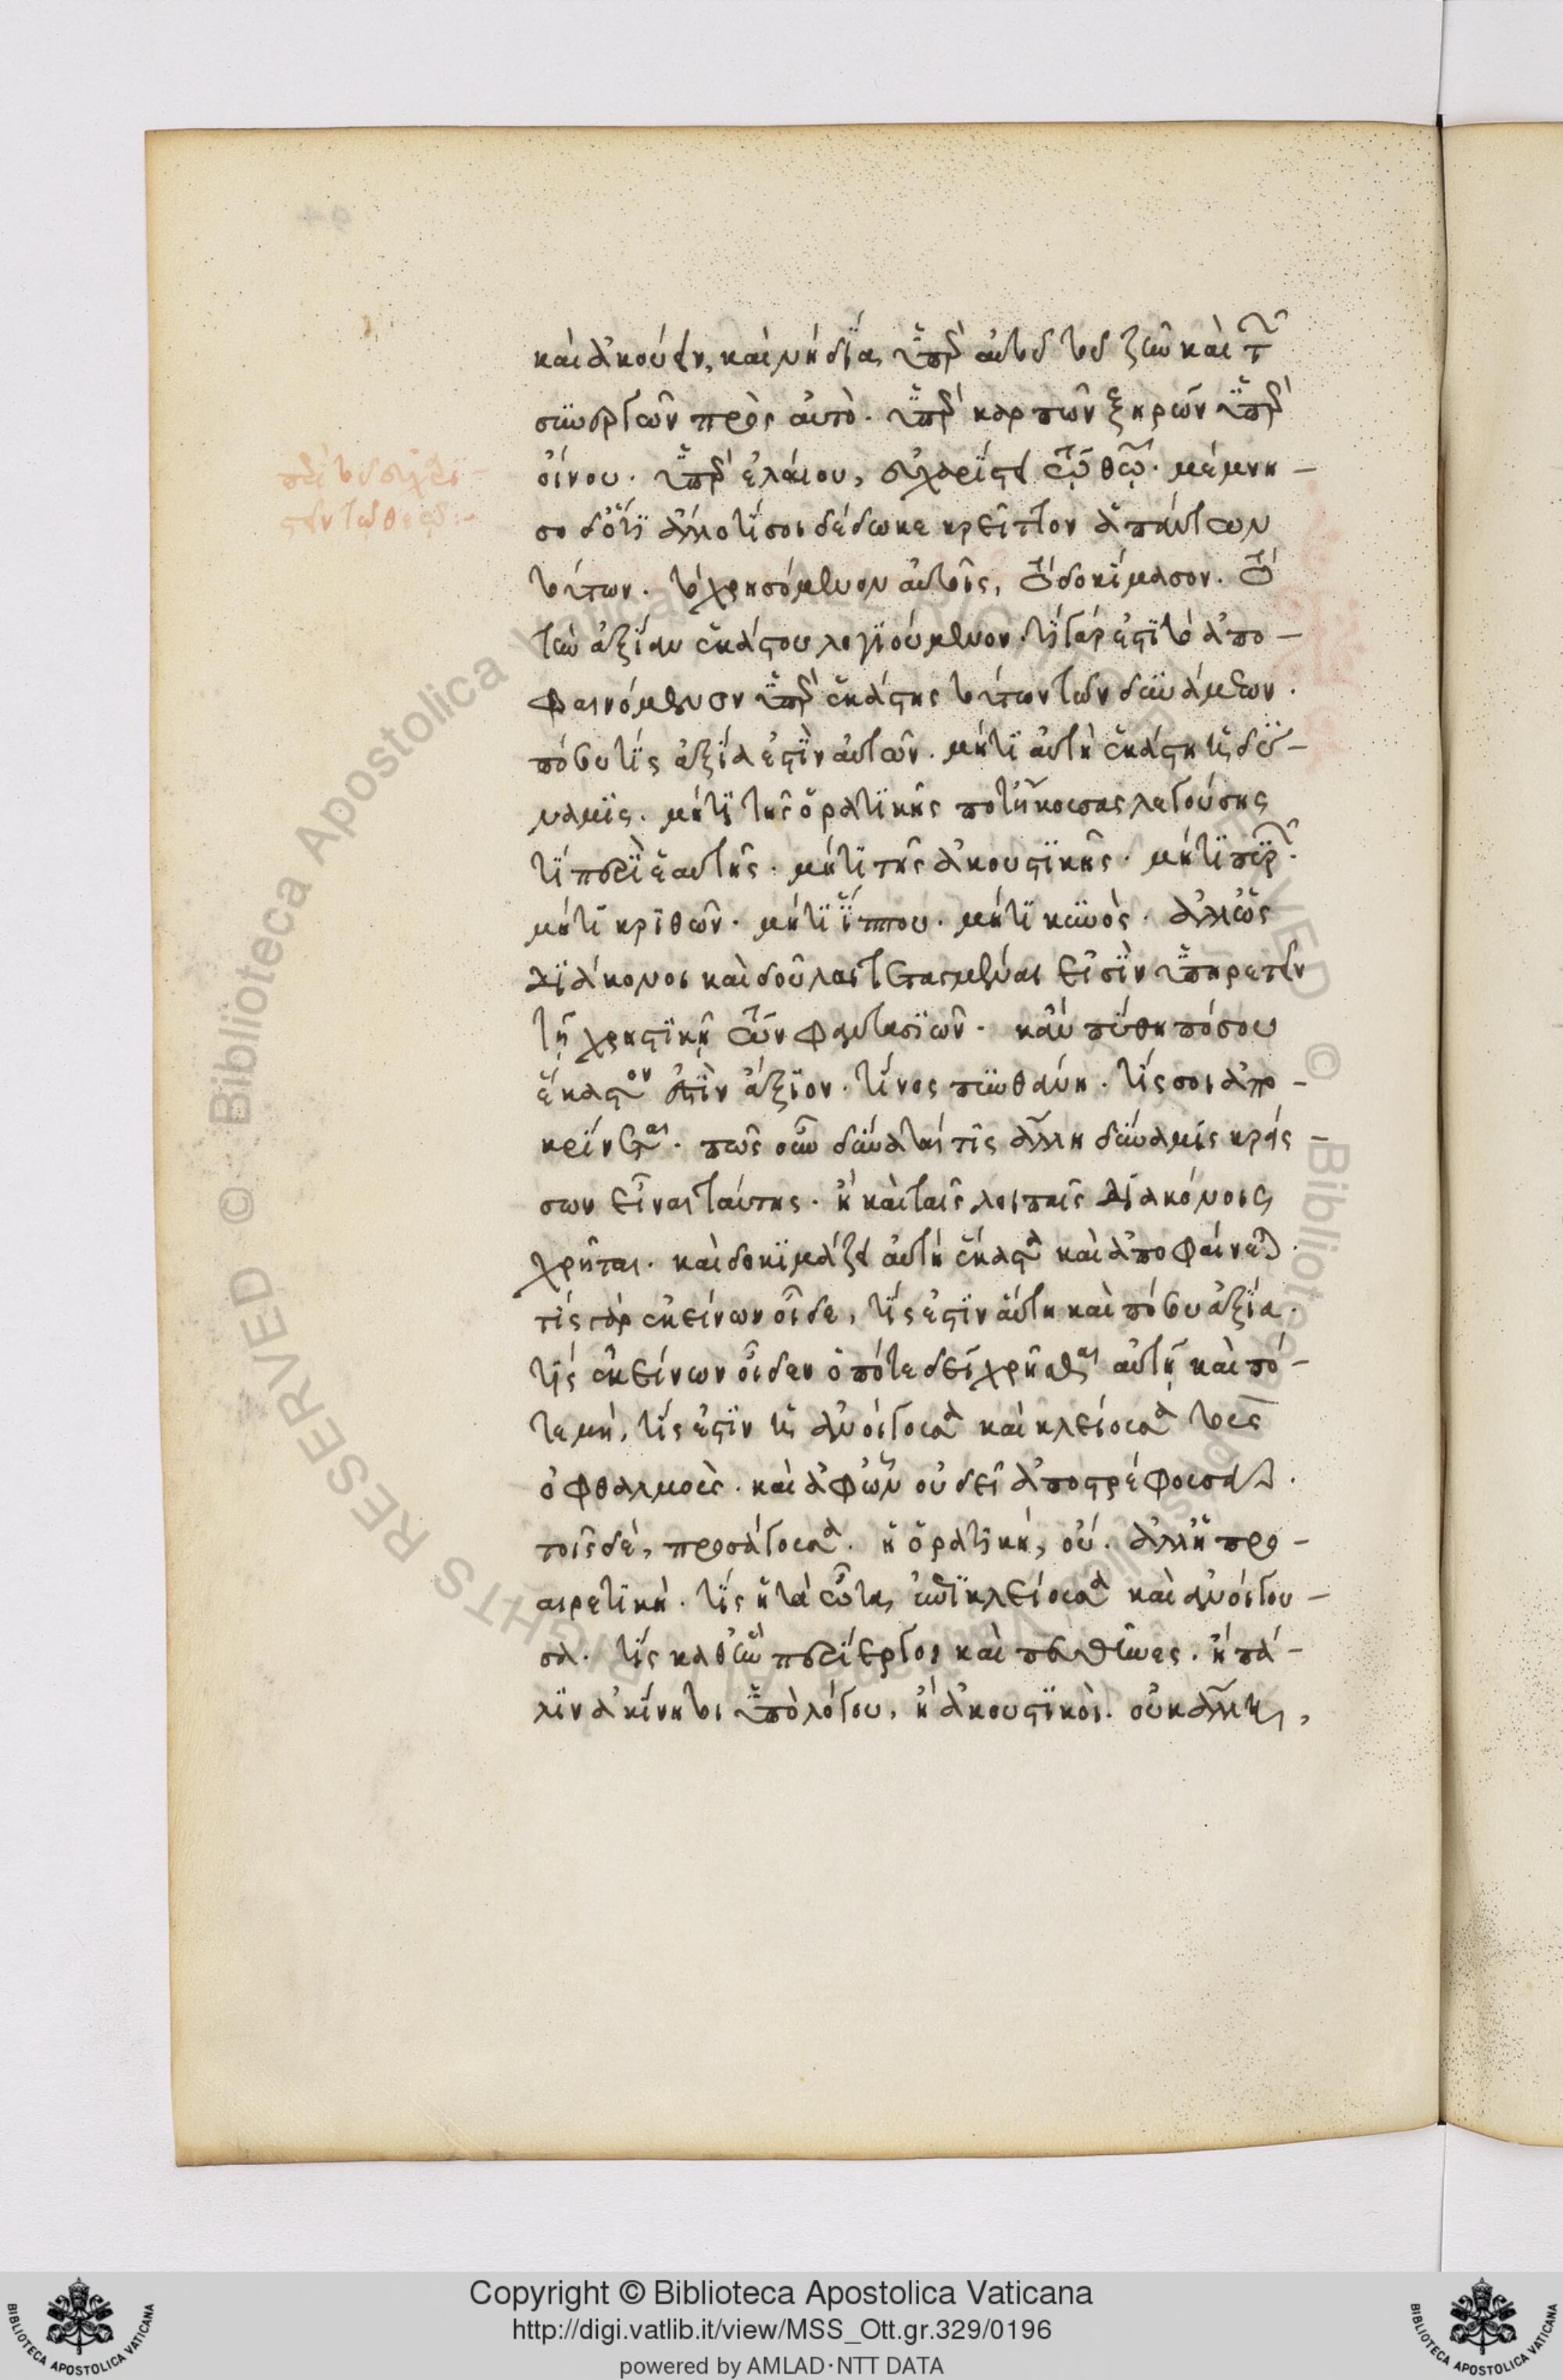 καὶ ἀκούειν, καὶ νὴ δΐα, ὑπὲρ αὐτοῦ τοῦ ζῆν καὶ τῶν
συνεργῶν πρὸς αὐτὸ. ὑπὲρ καρπῶν ξηρῶν ὑπὲρ
οἴνου. ὑπὲρ ἐλαίου, εὐχαρίστει τῷ θεῷ. μέμνη-
σο δ' ὅτι ἄλλο τί σοι δέδωκε κρεῖττον ἁπάντων
τούτων. τὸ χρησόμενον αὐτοῖς, τὸ δοκιμάσον. τὸ
τὴν ἀξίαν ἑκάστου λογιούμενον. τί γάρ ἐστι τὸ ἀπο-
φαινόμενον ὑπὲρ ἑκάστης τούτων τῶν δυνάμεων.
πόσου τίς ἀξία ἐστὶν αὐτῶν. μήτι αὐτὴ ἑκάστη ἡ δύ-
ναμις. μήτι τῆς ὁρατικῆς ποτ' ἤκουσας λεγούσης
τί περὶ ἑαυτῆς. μήτι τῆς ἀκουστικῆς. μήτι πυρῶν.
μήτι κριθῶν. μήτι ἵππου. μήτι κυνὸς. ἀλλ' ὡς
διάκονοι καὶ δοῦλαι τεταγμέναι εἰσὶν ὑπηρετεῖν
τῇ χρηστικῇ τῶν φαντασιῶν. κἂν πύθη πόσου
ἕκαστον ἐστὶν ἄξιον. τίνος πυνθάνη. τίς σοι ἀπο-
κρίνεται. πῶς οὖν δύναταί τις ἄλλη δύναμις κρείσ-
σων εἶναι ταύτης. ἣ καὶ ταῖς λοιπαῖς διακόνοις
χρῆται. καὶ δοκιμάζει αὐτὴ ἕκαστα καὶ ἀποφαίνεται.
τίς γὰρ ἐκείνων οἶδε, τίς ἐστὶν αὐτὴ καὶ πόσου ἀξία.
τίς ἐκείνων οἶδεν ὁπότε δεῖ χρῆσθαι αὐτῇ καὶ πό-
τε μή, τίς ἐστὶν ἡ ἀνοίγουσα καὶ κλείουσα τοὺς
ὀφθαλμοὺς. καὶ ἀφ' ὧν οὐ δεῖ ἀποστρέφουσα.
τοῖς δὲ, προσάγουσα. ἡ ὁρατικὴ, οὔ. ἀλλ' ἡ προ-
αιρετικὴ. τίς ἡ τὰ ὦτα, ἐπικλείουσα καὶ ἀνοίγου-
σα. τίς καθ' ἣν περίεργοι καὶ πευθῆνες. ἢ πά-
λιν ἀκίνητοι ὑπὸ λόγου, ἡ ἀκουστικὴ. οὐκ ἄλλη,